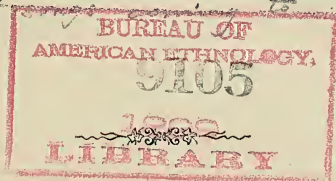 BUREAU OF
AMERICAN ETHNOLOGY,
9105
LIBRARY